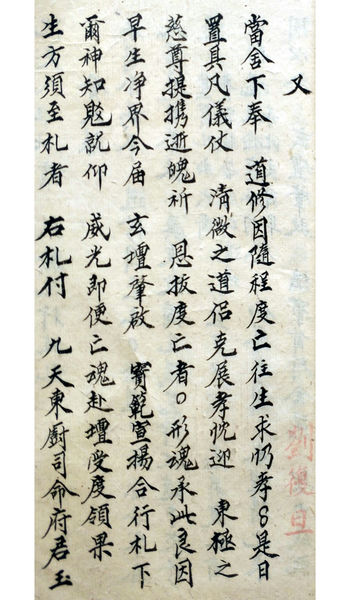 又
當舍下奉 道修因隨程度亡往生求仍孝8是日
置具凡儀仗 清微之道侶克展孝忱迎 東極之
慈尊提携逝魄祈 恩拔度亡者○形魂承此良因
早生净界今届 玄壇肇啟 寳範宣揚合行札下
爾神知懸就仰 威光即便亡魂赴壇受度領果
生方須至札者 右札付 九天東厨司命府君玉
劉復旦